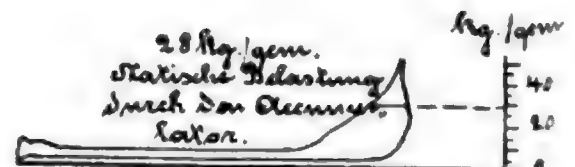 28 kg/qcm.
Statische Belastung
durch den Accumu-
lator.
kg/qcm
40
20
0